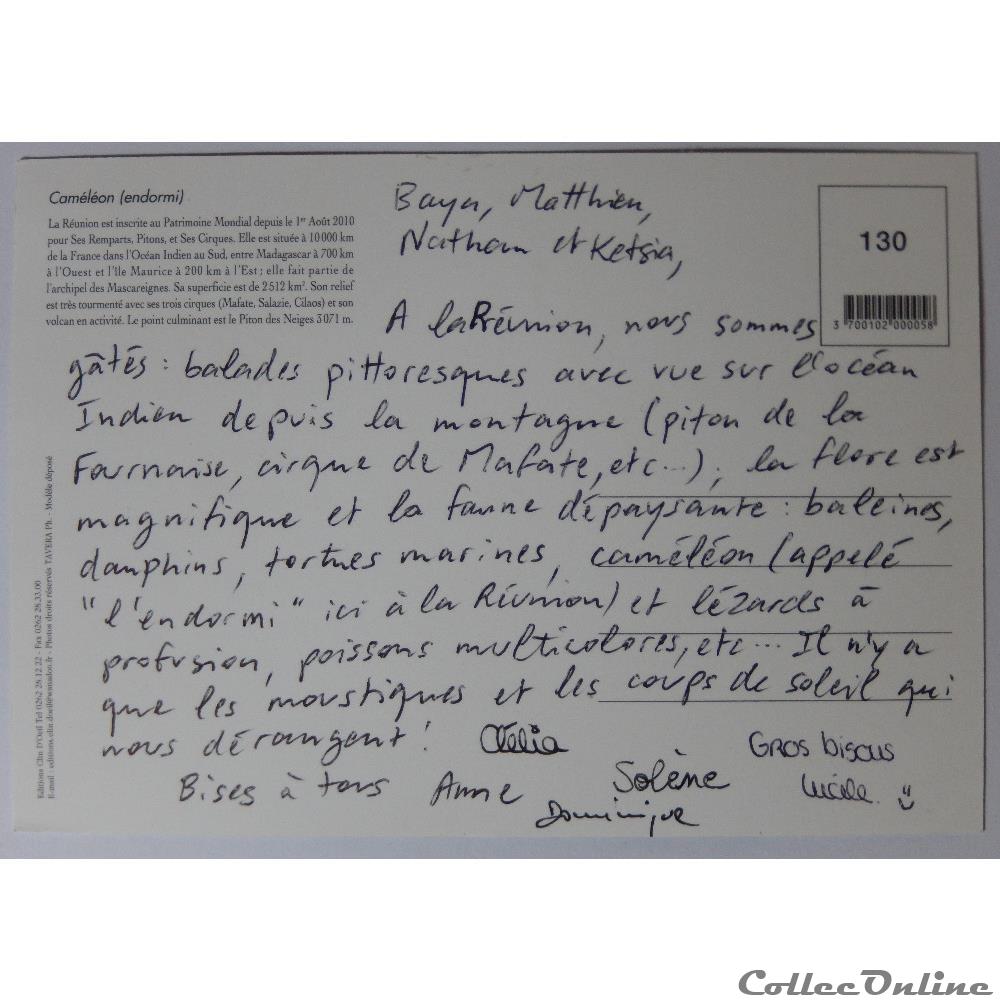 Caméléon (endormi)
La Réunion est inscrite au Patrimoine Mondial depuis le 1er Août 2010
pour Ses Remparts, Pitons, et Ses Cirques. Elle est située à 10 000 km
de la France dans l'Océan Indien au Sud, entre Madagascar à 700 km
à l'Ouest et l'île Maurice à 200 km à l'Est ; elle fait partie de
l'archipel des Mascareignes. Sa superficie est de 2 512 km². Son relief
est très tourmenté avec ses trois cirques (Mafate, Salazie, Cilaos) et son
volcan en activité. Le point culminant est le Piton des Neiges 3 071 m.
130
3 700102 000058
Baya, Matthieu,
Nathan et Ketsia,
A la Réunion, nous sommes
gâtés : balades pittoresques avec vue sur l'océan
Indien depuis la montagne (piton de la
Fournaise, cirque de Mafate, etc...), la flore est
magnifique et la faune dépaysante : baleines,
dauphins, tortues marines, caméléon (appelé
"l'endormi" ici à la Réunion) et lézards à
profusion, poissons multicolores, etc... Il n'y a
que les moustiques et les coups de soleil qui
nous dérangent !
Clélia
Gros bisous
Bises à tous Anne
Solène
Lucile
Dominique
Editions Clin D'Oeil Tel 0262 28.12.22 - Fax 0262 28.33.00
E-mail : editions.clin.doeil@wanadoo.fr - Photos droits réservés TAVERA Ph. - Modèle déposé
CollecOnline